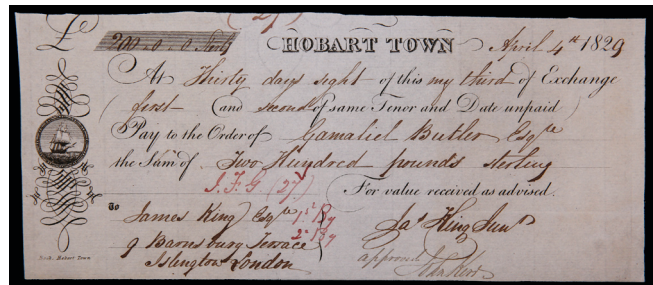 (27)
£ 200 „ 0 „ 0 Sterlg
HOBART TOWN April 4th 1829
At Thirty days sight of this my third of Exchange
(first and second of same Tenor and Date unpaid)
Pay to the Order of Gamaliel Butler Esqre
the Sum of Two Hundred pounds sterling
J.F.G (27)
For value received as advised.
To
James King Esqre
9 Barnsbury Terrace
Islington London
Jas King Junr
approved
Hobart Town